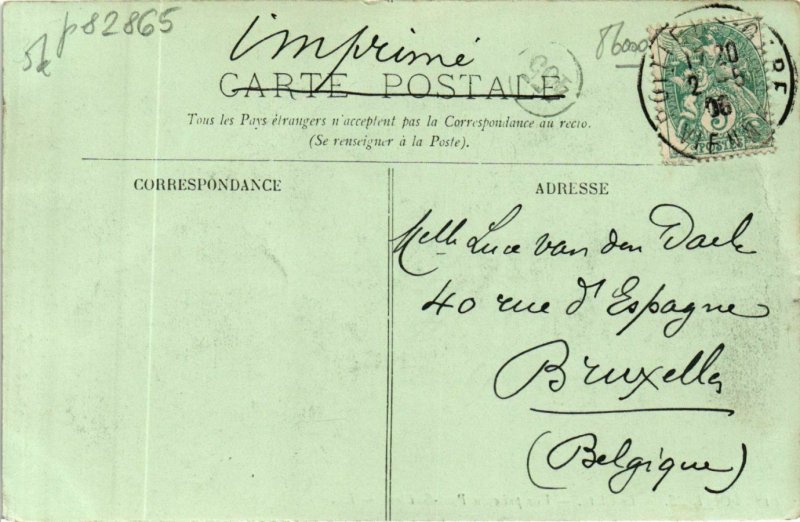 p82865
imprimé
CARTE POSTALE
Tous les Pays étrangers n'acceptent pas la Correspondance au recto.
(Se renseigner à la Poste).
CORRESPONDANCE
ADRESSE
Melle Luce van den Daele
40 rue d'Espagne
Bruxelles
(Belgique)